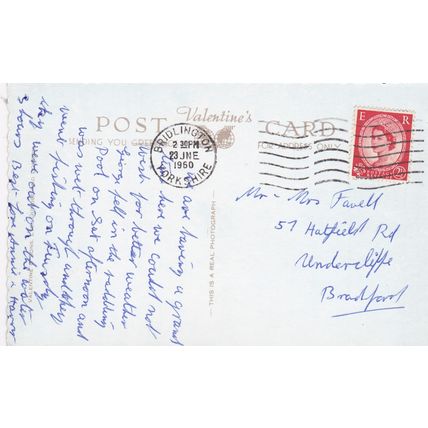 POST Valentine's CARD
SENDING YOU GREET FOR ADDRESS ONLY
BRIDLINGTON
2 30PM
23 JNE
1960
YORKSHIRE
E R
POSTAGE
— THIS IS A REAL PHOTOGRAPH —
are having a grand
here we could not
wish for better weather
fell in the paddling
Pool on Sat afternoon and
was wet through
went fishing on Tuesday
they were out on the water
3 hours Best for Annie & Harry
Mr & Mrs Favell
57 Hatfield Rd
Undercliffe
Bradford